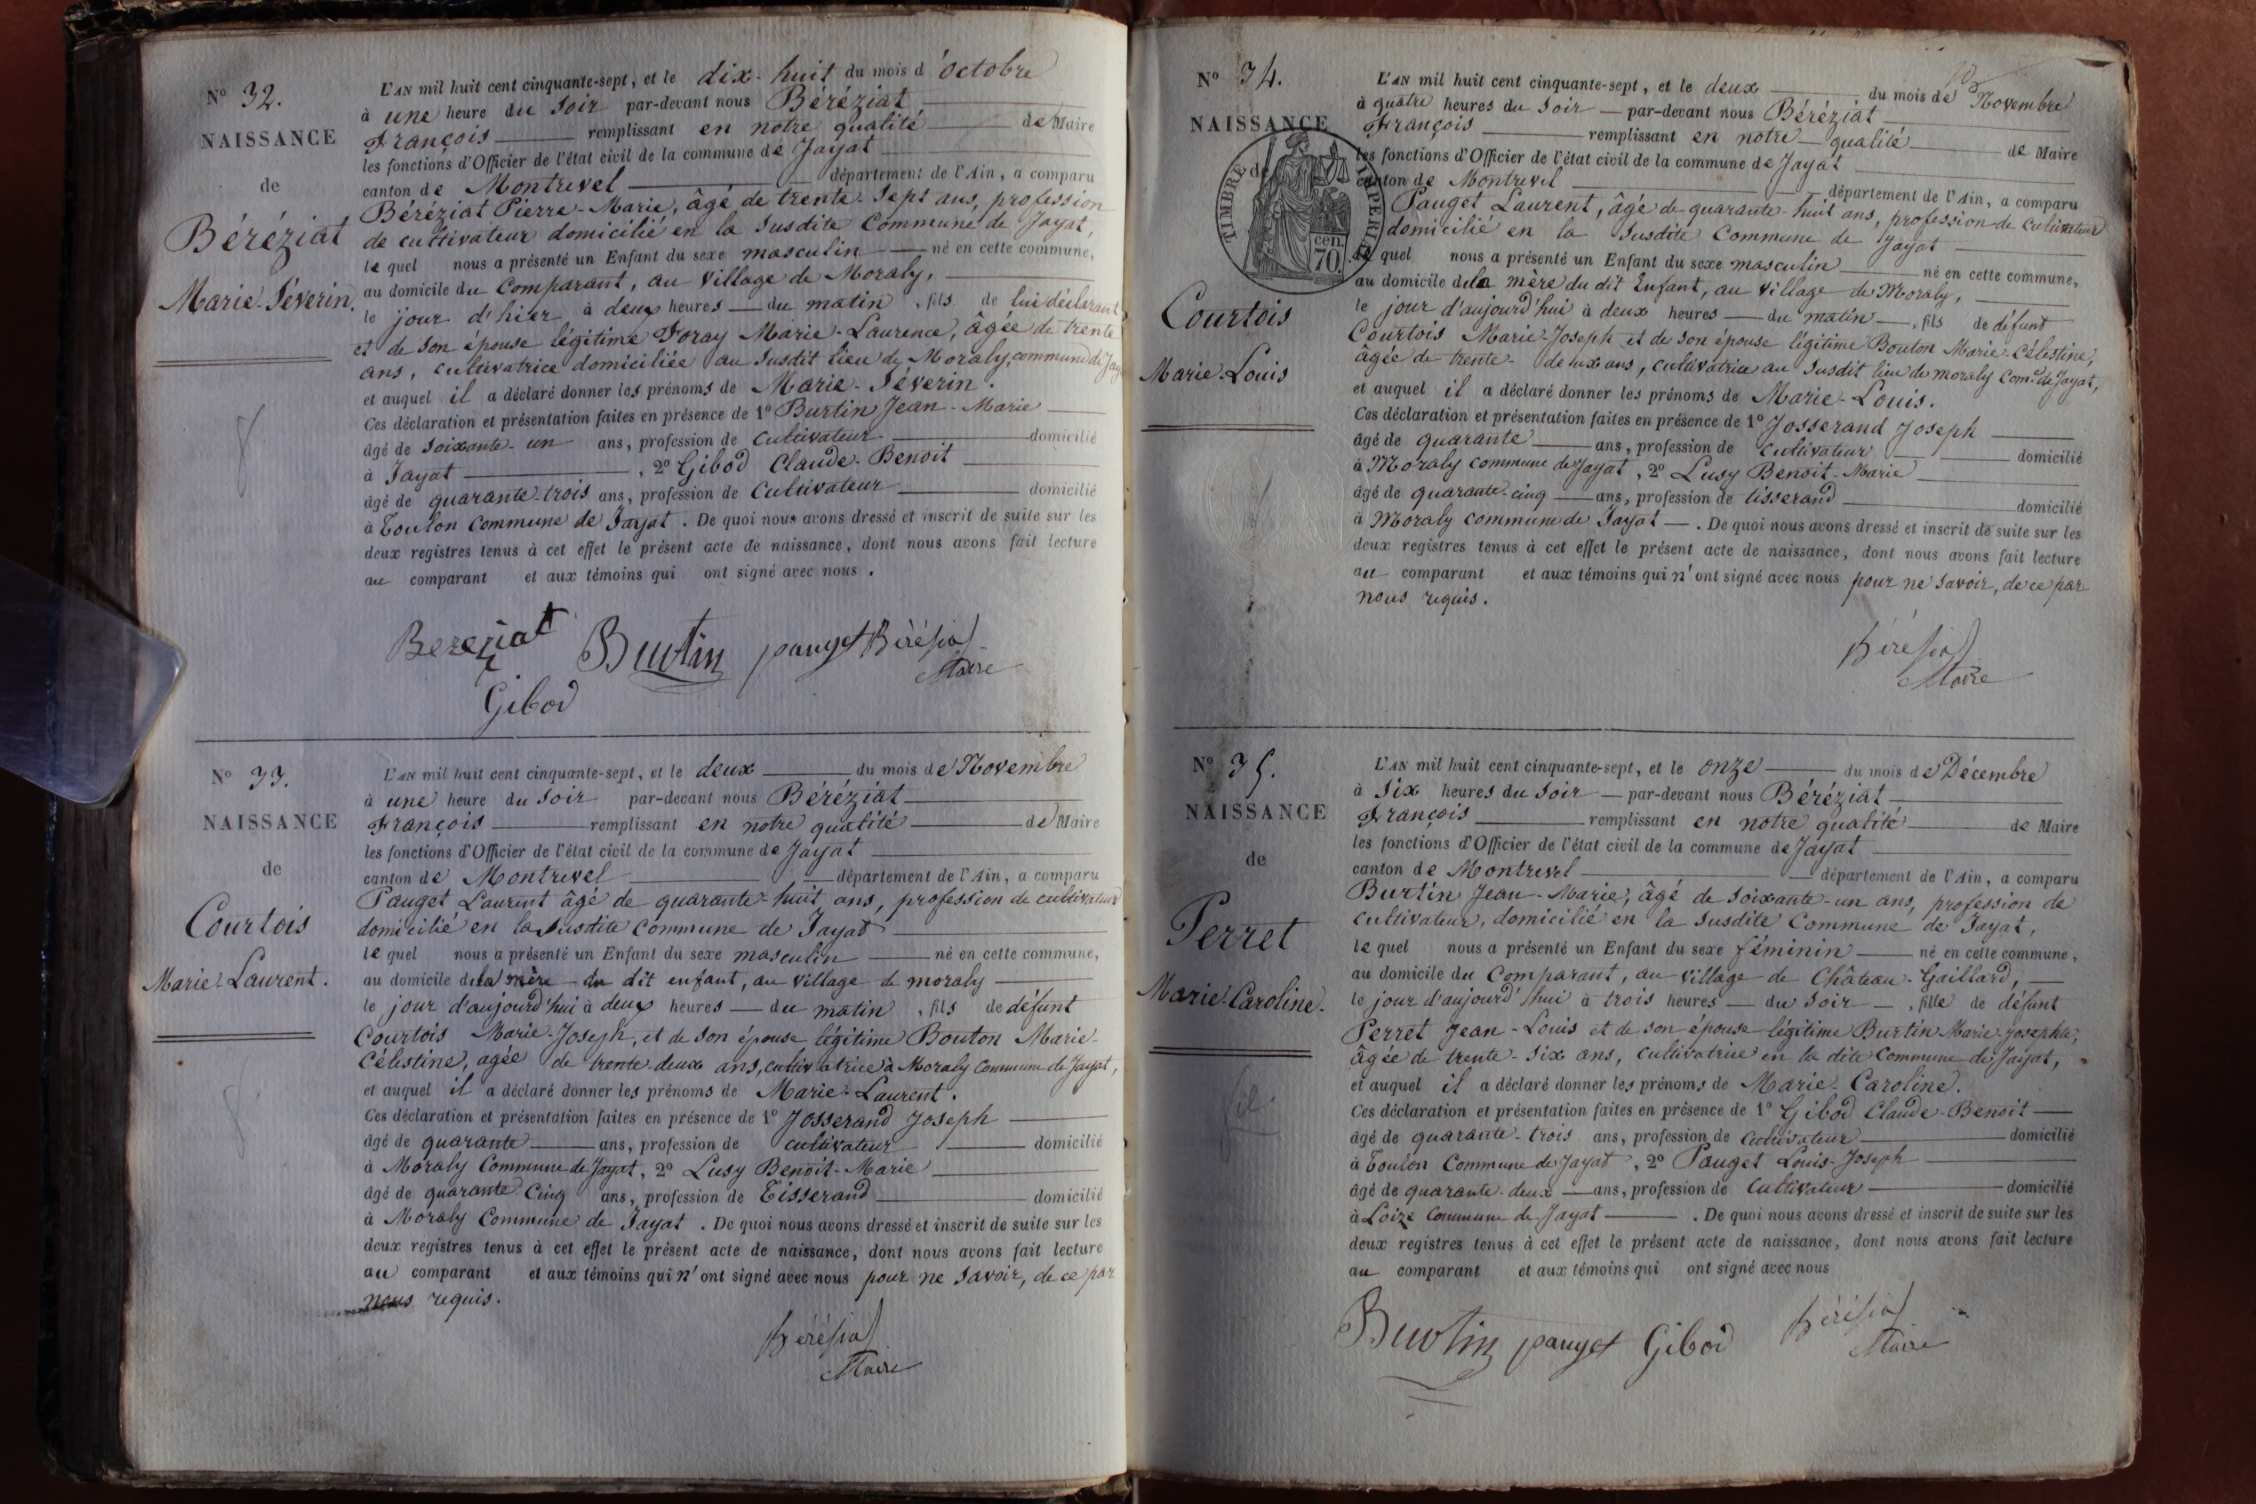 N° 32.
NAISSANCE
de
Béréziat
Marie-Séverin.
L'AN mil huit cent cinquante-sept, et le dix-huit du mois d'octobre
à une heure du soir par-devant nous Béréziat
François remplissant en notre qualité de Maire
les fonctions d'Officier de l'état civil de la commune de Jayat
canton de Montrevel département de l'Ain, a comparu
Béréziat Pierre-Marie, âgé de trente-sept ans, profession
de cultivateur domicilié en la susdite Commune de Jayat,
lequel nous a présenté un Enfant du sexe masculin né en cette commune,
au domicile du Comparant, au village de Moraly,
le jour d'hier à deux heures du matin, fils de lui déclarant
et de son épouse légitime Foray Marie-Laurence, âgée de trente
ans, cultivatrice domiciliée au susdit lieu de Moraly, commune de Jay
et auquel il a déclaré donner les prénoms de Marie-Séverin.
Ces déclaration et présentation faites en présence de 1° Burtin Jean-Marie
âgé de soixante-un ans, profession de cultivateur domicilié
à Jayat, 2° Gibod Claude-Benoit
âgé de quarante-trois ans, profession de Cultivateur domicilié
à Toulon Commune de Jayat. De quoi nous avons dressé et inscrit de suite sur les
deux registres tenus à cet effet le présent acte de naissance, dont nous avons fait lecture
au comparant et aux témoins qui ont signé avec nous.
Bereziat Burtin pauget Bérésiat
Maire
Gibod
N° 33.
NAISSANCE
de
Courtois
Marie-Laurent.
L'AN mil huit cent cinquante-sept, et le deux du mois de Novembre
à une heure du soir par-devant nous Béréziat
François remplissant en notre qualité de Maire
les fonctions d'Officier de l'état civil de la commune de Jayat
canton de Montrevel département de l'Ain, a comparu
Pauget Laurent âgé de quarante-huit ans, profession de cultivateur
domicilié en la susdite Commune de Jayat
lequel nous a présenté un Enfant du sexe masculin né en cette commune,
au domicile de la mère du dit enfant, au village de moraly
le jour d'aujourd'hui à deux heures du matin, fils de défunt
Courtois Marie-Joseph, et de son épouse légitime Bouton Marie-
Célestine, agée de trente-deux ans, cultivatrice à Moraly Commune de Jayat,
et auquel il a déclaré donner les prénoms de Marie-Laurent.
Ces déclaration et présentation faites en présence de 1° Josserand Joseph
âgé de quarante ans, profession de cultivateur domicilié
à Moraly Commune de Jayat, 2° Lusy Benoit-Marie
âgé de quarante-cinq ans, profession de Tisserand domicilié
à Moraly Commune de Jayat. De quoi nous avons dressé et inscrit de suite sur les
deux registres tenus à cet effet le présent acte de naissance, dont nous avons fait lecture
au comparant et aux témoins qui n'ont signé avec nous pour ne savoir, de ce par
nous requis.
Bérésiat
Maire
N° 34.
NAISSANCE
de
TIMBRE IMPERIAL
cen.
70.
Courtois
Marie-Louis
L'AN mil huit cent cinquante-sept, et le deux du mois de Novembre
à quatre heures du soir par-devant nous Béréziat
François remplissant en notre qualité de Maire
les fonctions d'Officier de l'état civil de la commune de Jayat
canton de Montrevel département de l'Ain, a comparu
Pauget Laurent, âgé de quarante-huit ans, profession de cultivateur
domicilié en la susdite Commune de Jayat
lequel nous a présenté un Enfant du sexe masculin né en cette commune,
au domicile de la mère du dit Enfant, au village de Moraly,
le jour d'aujourd'hui à deux heures du matin, fils de défunt
Courtois Marie-Joseph et de son épouse légitime Bouton Marie-Célestine,
âgée de trente-deux ans, cultivatrice au susdit lieu de moraly Com.e de Jayat,
et auquel il a déclaré donner les prénoms de Marie-Louis.
Ces déclaration et présentation faites en présence de 1° Josserand Joseph
âgé de quarante ans, profession de cultivateur domicilié
à Moraly commune de Jayat, 2° Lusy Benoit-Marie
âgé de quarante-cinq ans, profession de tisserand domicilié
à Moraly commune de Jayat. De quoi nous avons dressé et inscrit de suite sur les
deux registres tenus à cet effet le présent acte de naissance, dont nous avons fait lecture
au comparant et aux témoins qui n'ont signé avec nous pour ne savoir, de ce par
nous requis.
Bérésiat
Maire
N° 35.
NAISSANCE
de
Perret
Marie-Caroline.
L'AN mil huit cent cinquante-sept, et le onze du mois de Décembre
à six heures du soir par-devant nous Béréziat
François remplissant en notre qualité de Maire
les fonctions d'Officier de l'état civil de la commune de Jayat
canton de Montrevel département de l'Ain, a comparu
Burtin Jean-Marie, âgé de soixante-un ans, profession de
cultivateur, domicilié en la susdite Commune de Jayat,
lequel nous a présenté un Enfant du sexe féminin né en cette commune,
au domicile du Comparant, au village de Château-Gaillard,
le jour d'aujourd'hui à trois heures du soir, fille de défunt
Perret Jean-Louis et de son épouse légitime Burtin Marie-Josephte,
âgée de trente-six ans, cultivatrice en la dite Commune de Jayat,
et auquel il a déclaré donner les prénoms de Marie-Caroline.
Ces déclaration et présentation faites en présence de 1° Gibod Claude-Benoit
âgé de quarante-trois ans, profession de cultivateur domicilié
à Toulon Commune de Jayat, 2° Pauget Louis-Joseph
âgé de quarante-deux ans, profession de Cultivateur domicilié
à Loize Commune de Jayat. De quoi nous avons dressé et inscrit de suite sur les
deux registres tenus à cet effet le présent acte de naissance, dont nous avons fait lecture
au comparant et aux témoins qui ont signé avec nous
Burtin pauget Gibod Bérésiat
Maire